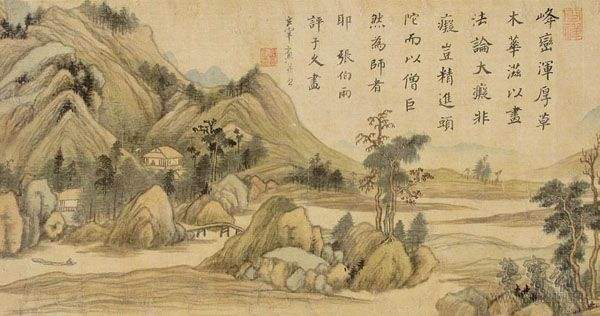 峰巒渾厚草
木華滋以畫
法論大癡非
癡豈精進頭
陀而以僧巨
然為師者
耶 張伯雨
評于久畫